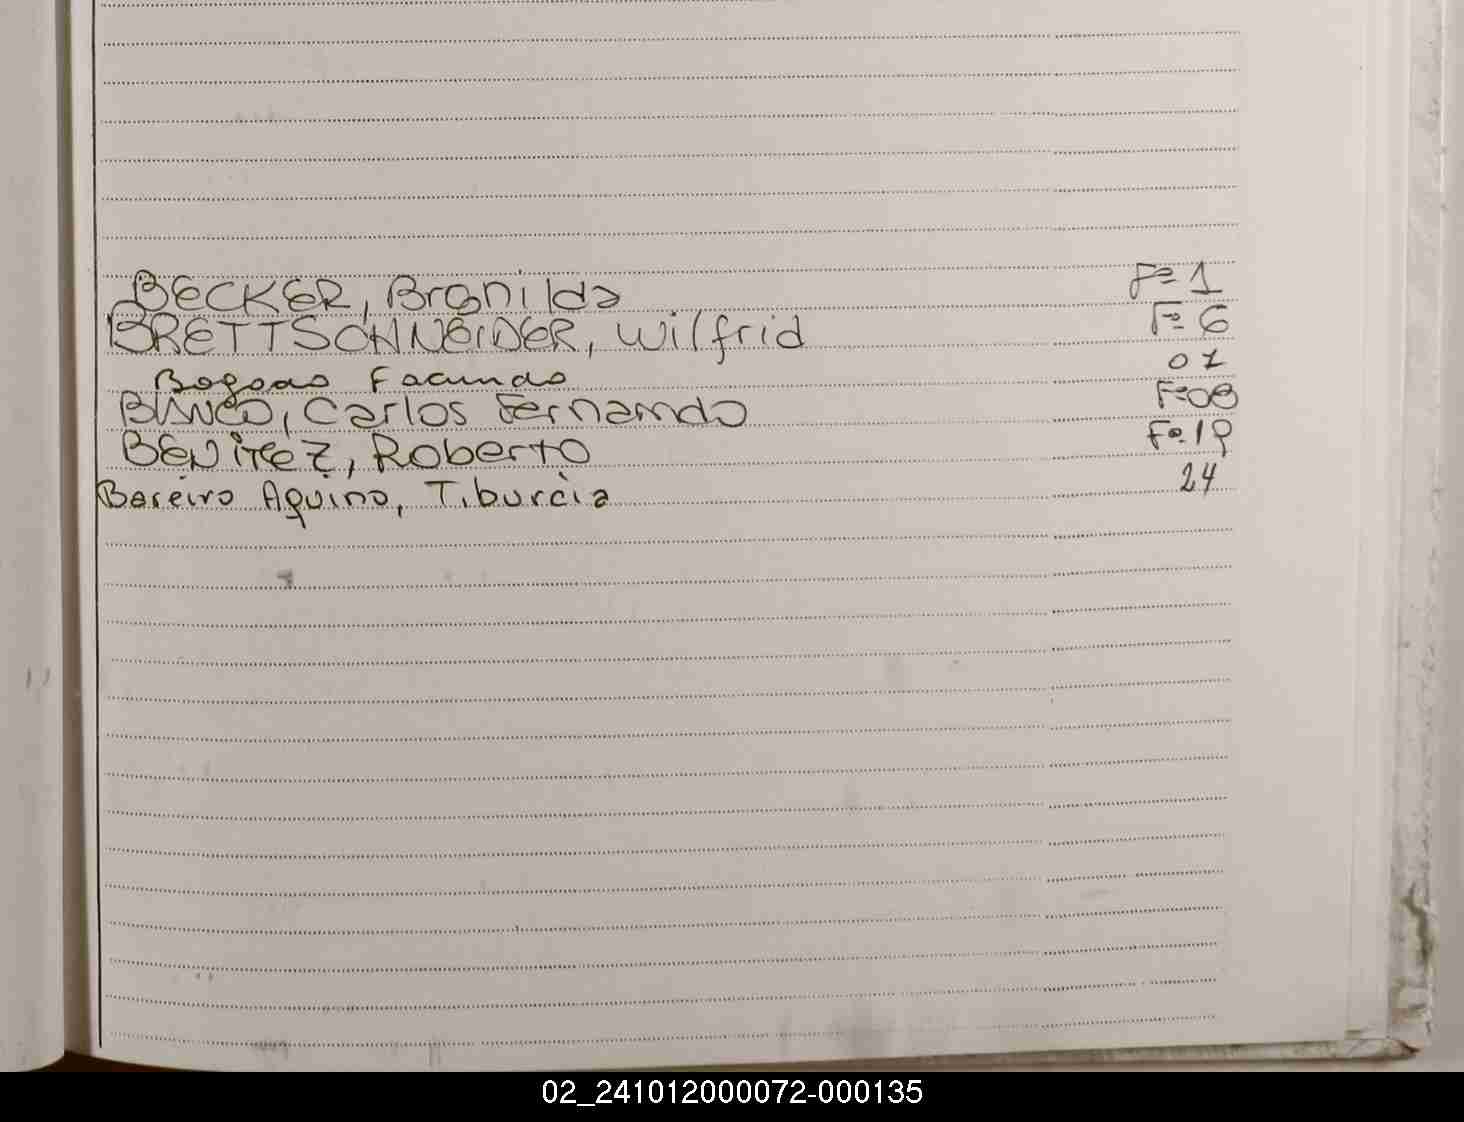 BECKER, Bronilda Fº 1
BRETTSCHNEIDER, Wilfrid Fº 6
Bogado Facundo 07
BIANCO, Carlos Fernando Fº 08
BENÍTEZ, Roberto Fº 19
Bareiro Aquino, Tiburcia 24
02_241012000072-000135